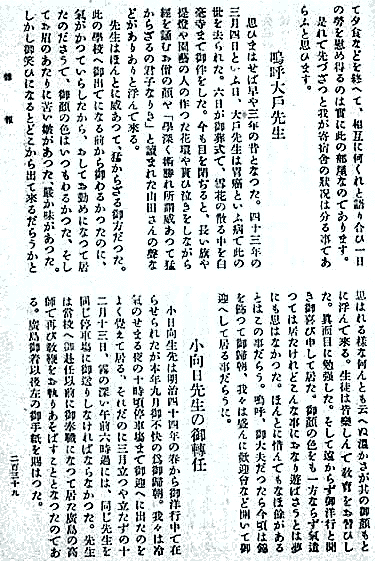 て夕食などを終へて、相互に何くれと語り合ひ一日
の勞を慰め得るのは實に此の部屋なのであります。
是れで先づざつと我が寄宿舎の狀況は分る事であ
らふと思ひます。
嗚呼大戸先生
思ひまはせば早や三年の昔となつた。四十三年の
三月四日といふ日、大戸先生は胃癌といふ病で此の
世を去られた。六日が御葬式で、雪花の散る中を白
毫寺まで御伴をした。今も目を閉ぢると、長い旗や
提燈や園藝の人の作つた花環や貰ひ泣きをしながら
經を誦むお僧の顔や「學深く術勝れ所謂威あつて猛
からざるの君子なりき」と讀まれた山田さんの聲な
どがありありと浮んで來る。
先生はほんとに威あつて、猛からざる御方だつた。
此の學校へ御出でになる前から御わるかつたのに、
氣がかつていらしたから、おしてお勤めになつて居
たのださうで、御顔の色はいつもわるかつた、そし
てお眉のあたりに苦い皺があつた、嚴か味があつた、
しかし御笑ひになるとどこから出て來るだらうかと
雜報
思はれる樣な何んとも云へぬ温かさが其の御顔もと
に浮んで來る。生徒は皆樂しんで敎育をお習ひし
た。眞面目に勉強した。そして遠からず御洋行と聞
き御喜び申して居た。御顔の色をも一方ならず氣遣
つては居たけれどこんな事におなり遊ばさうとは夢
にも思はなかつた。ほんとに惜んでもなほ餘がある
とはこの事だらう。嗚呼、御丈夫だつたら今頃は錦
を飾つて御歸朝、我々は盛んに歡迎會など開いて御
迎へして居る事だらうに。
小向日先生の御轉任
小日向生先は明治四十四年の春から御洋行中で在
らせられたが本年九月御不快の爲御歸朝。我々は冷
氣のせまる夜の十時頃停車塲まで御迎へに出たのを
よく覺えて居る、それだのに三月立つや立たずの十
二月十三日、霧の深い午前六時過には、同じ先生を
同じ停車塲に御送りしなければならなかつた。先生
は當校へ御赴任以前に御奉職になつて居た廣島の高
師で再び敎鞭をお執りあそばすこととなつたのであ
る。廣島御着以後左の御手紙を賜はつた。
二百三十九